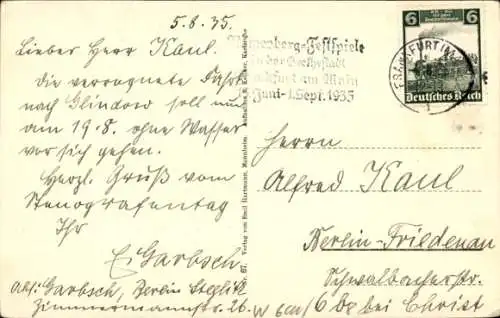 5.8.35.
Lieber Herr Kaul.
Die verregnete Fahrt
nach Glindow soll nun
am 19.8. ohne Wasser
vor sich gehen.
Herzl. Gruß vom
Stenografentag
Ihr
E. Garbsch
Abs: Garbsch, Berlin Steglitz
Zimmermannstr. 26.
Römerberg-Festspiele
in der Goethestadt
Frankfurt am Main
Juni-1.Sept.1935
6 6
FRANKFURT (M
Deutsches Reich
Verlag von Emil Hartmann, Mannheim
Herrn
Alfred Kaul
Berlin-Friedenau
Schwalbacherstr.
bei Christ